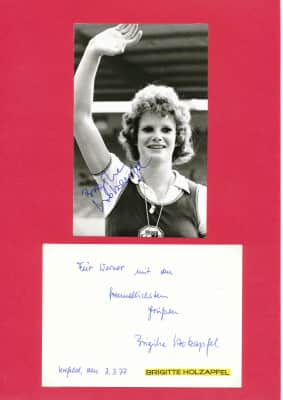 Brigitte
Holzapfel
Für Werner mit den
freundlichsten
Grüßen
Brigitte Holzapfel
Krefeld, den 7.3.77
BRIGITTE HOLZAPFEL